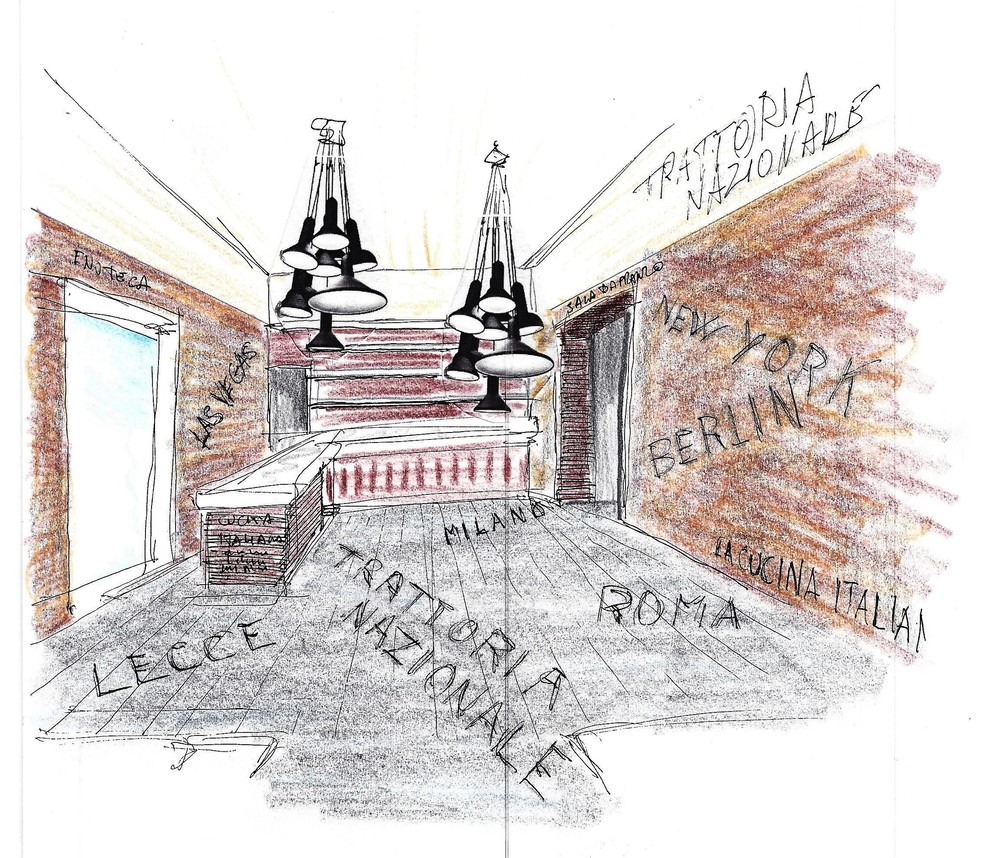 TRATTORIA
NAZIONALE
ENOTECA
SALA DA PRANZO
LAS VEGAS
NEW YORK
BERLIN
CUCINA
ITALIANA
MILANO
LA CUCINA ITALIAN
TRATTORIA
NAZIONALE
ROMA
LECCE